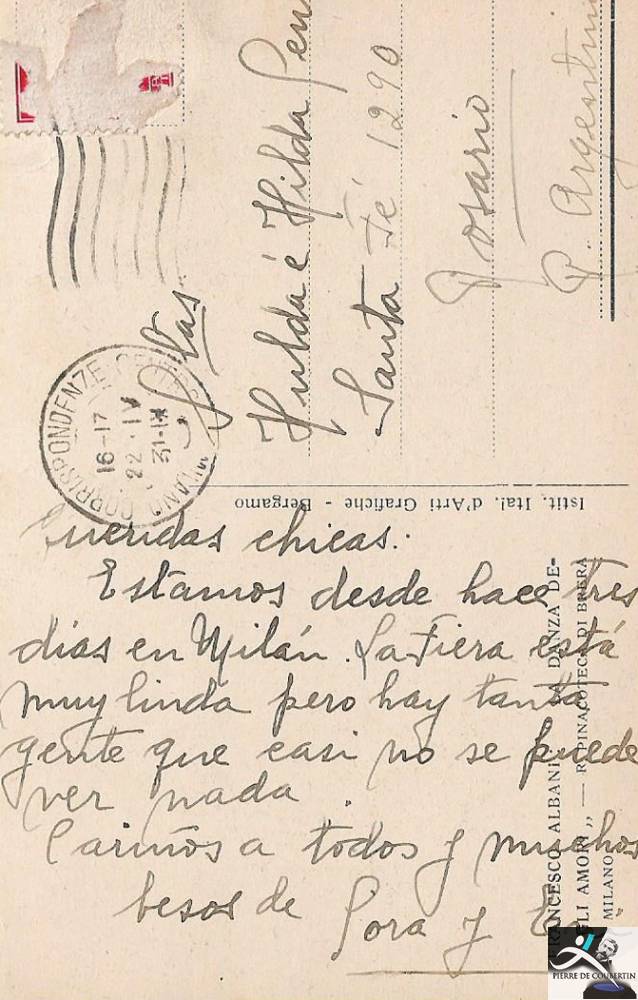 Stas
Hulda é Hilda Pen
Santa Fé 1290
Rosario
R. Argentin
MILANO CORRISPONDENZE
16-17
22·IV
31-IX
Istit. Ital. d'Arti Grafiche - Bergamo
Queridas chicas:
Estamos desde hace tres
días en Milán. La Fiera está
muy linda pero hay tanta
gente que casi no se puede
ver nada.
Cariños a todos y muchos
besos de
y
ANCESCO ALBANI: LA DANZA DE-
GLI AMORI „ — R. PINACOTECA DI BRERA
MILANO
PIERRE DE COUBERTIN